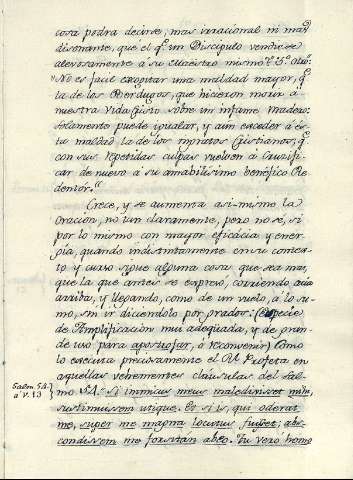 cosa podra decirse, mas irracional ni mas
disonante, que el q.e un Discipulo vendiese
alevosamente á su Maestro mismo?
"No es facil excogitar una maldad mayor, q.e
la de los Verdugos, que hicieron morir á
nuestra Vida Christo sobre un infame Madero:
solamente puede igualar, y aun exceder á es
ta maldad la de los ingratos Christianos, q.e
con sus repetidas culpas vuelven á Crucifi-
car de nuevo á su amabilisimo benefico Re
dentor."
Crece, y se aumenta asi-mismo la
Oracion, no tan claramente, pero no sé, si
por lo mismo con mayor eficácia y ener-
gía, quando indistintamente en su contex-
to y curso sigue alguna cosa, que sea mas,
que la que antes se expresó, corriendo ácia
arriba, y llegando, como de un vuelo, á lo su-
mo, sin ir diciendolo por grados: (especie
de Amplificacion mui adequada, y de gran-
de uso para apostrofar, ó reconvenir) Como
lo executa precisamente el Rl. Profeta en
aquellas vehementes clausulas del Sal-
Salm. 54.
á v. 13
mo 54. si inimicus meus maledixisset mihi,
sustinuissem utique. Et si is, qui oderat
me, super me magna locutus fuisset; abs-
condissem me forsitan ab eo. Tu vero homo